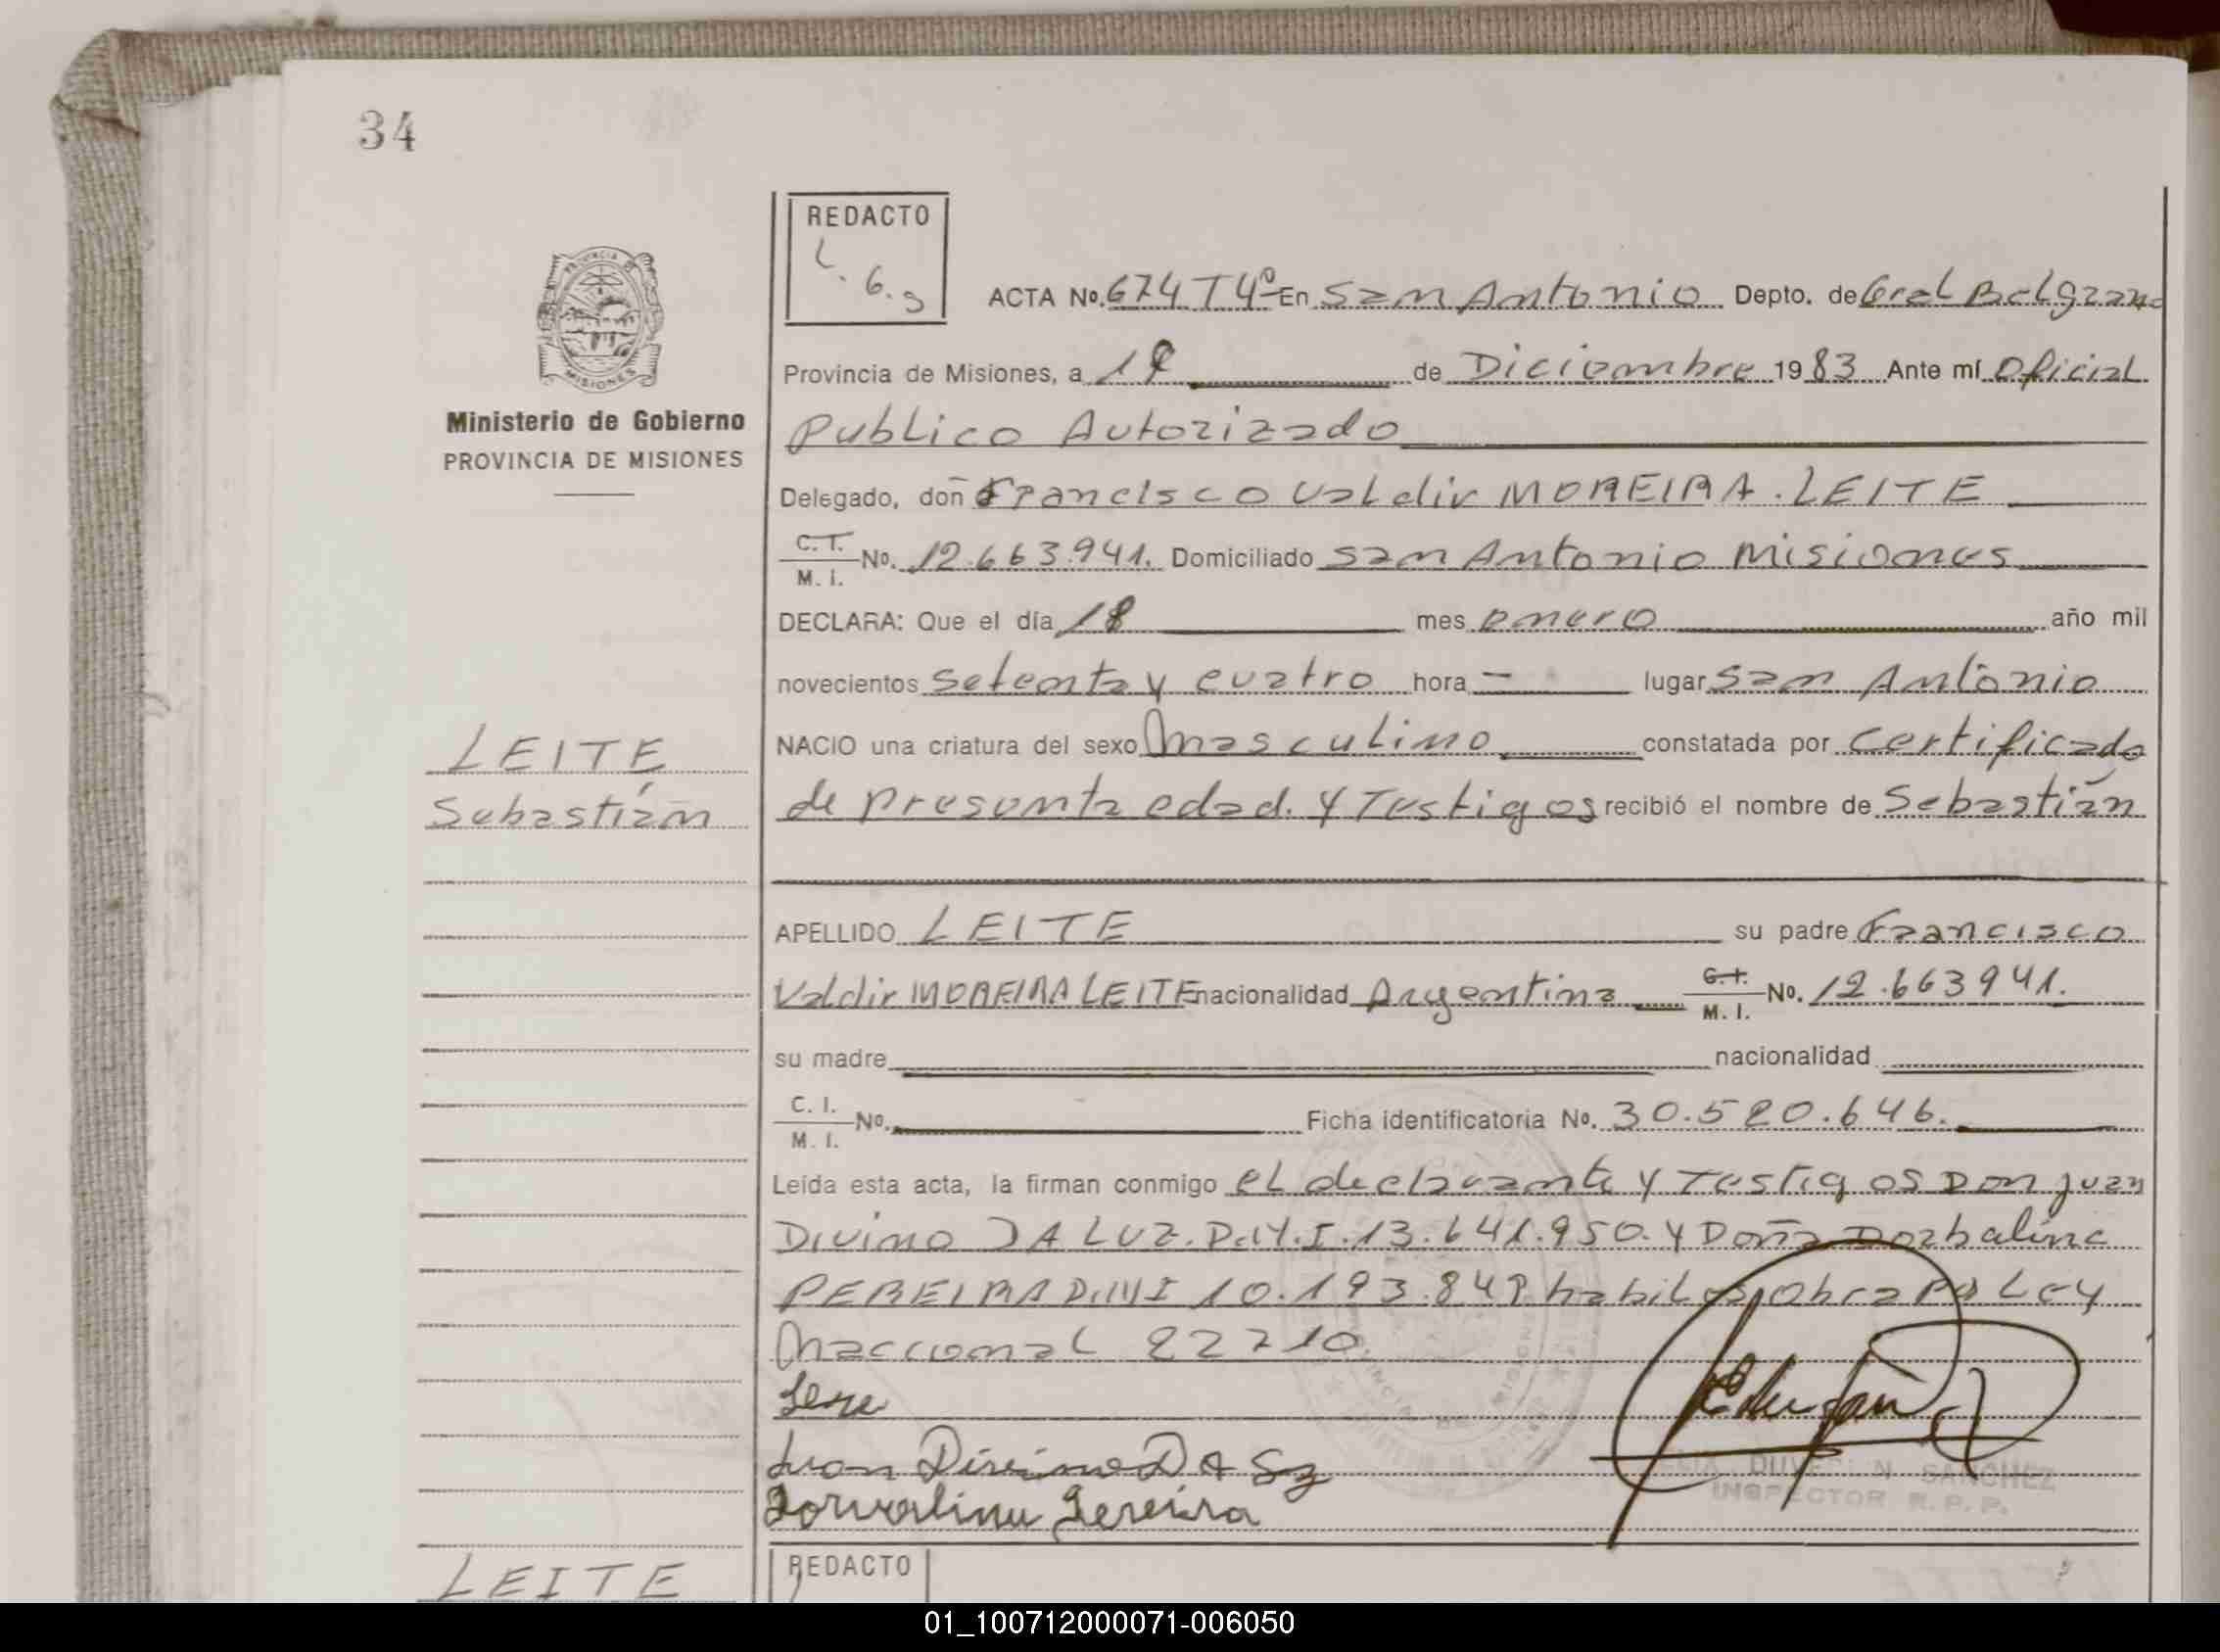 34
REDACTO
L. 6. 3
ACTA No. 674 T4º En San Antonio Depto. de Gral Belgrano
Provincia de Misiones, a de Diciembre 1983 Ante mí Oficial
Ministerio de Gobierno
PROVINCIA DE MISIONES
Publico Autorizado
Delegado, don Francisco Valdir MOREIRA. LEITE
C. T. M. I. No. 12.663.941. Domiciliado San Antonio Misiones
DECLARA: Que el día 18 mes enero año mil
novecientos setenta y cuatro hora - lugar San Antonio
LEITE
NACIO una criatura del sexo Masculino constatada por Certificado
Sebastián
de presunta edad. Y Testigos recibió el nombre de Sebastián
APELLIDO LEITE su padre Francisco
Valdir MOREIRA LEITE nacionalidad Argentina C. I. M. I. No. 12.663941.
su madre nacionalidad
C. I. M. I. No. Ficha identificatoria No. 30.520.646.
Leída esta acta, la firman conmigo el declarante y Testigos Don Juan
Divino DA LUZ. D.M.I. 13.641.950. y Doña Dorbalina
PEREIRA D.M.I 10.193.849 habiles, Obra Pa Ley
Naccional 22210
Juan Divino DA
Dorvalina Pereira
SANCHEZ
INSPECTOR R. P. P.
LEITE
REDACTO
01_100712000071-006050